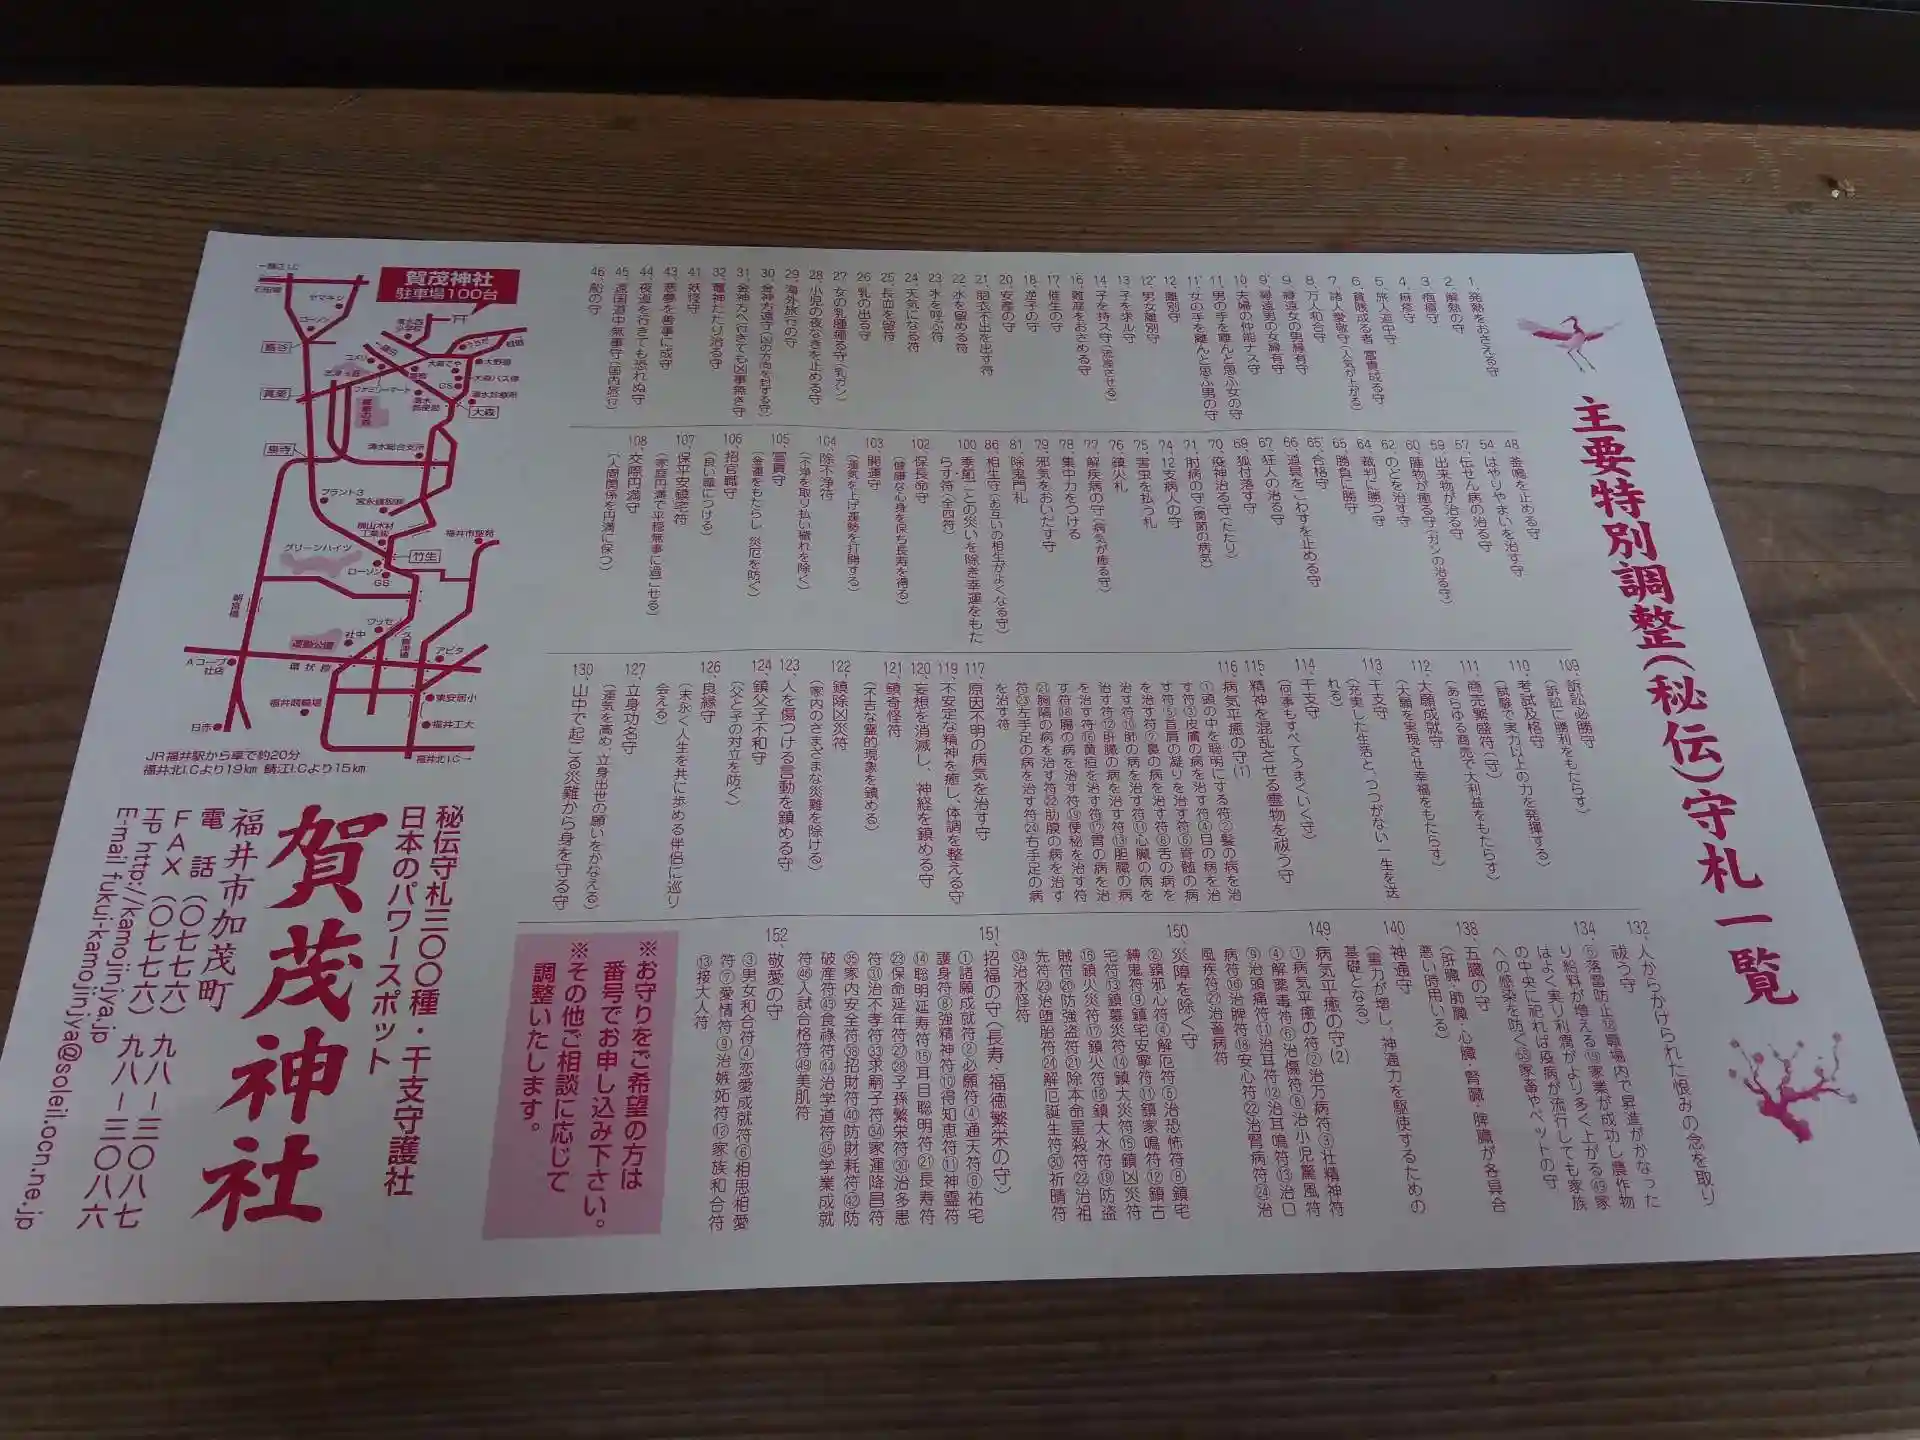 主要特別調整(秘伝)守札一覧
1、発熱をおさえる守
2、解熱の守
3、疱瘡守
4、麻疹守
5、旅人道中守
6、貧賎成る者 富貴成る守
7、諸人愛敬守(人気が上がる)
8、万人和合守
9、縁遠女の男縁有守
9'、縁遠男の女縁有守
10、夫婦の仲能ナス守
11、男の手を離んと思ふ女の守
11'、女の手を離んと思ふ男の守
12、離別守
12'、男女離別守
13、子を求ル守
14、子を持ス守(流産させる)
16、難産をおさめる守
17、催生の守
18、逆子の守
20、安産の守
21、胞衣不出を出す符
22、水を留める符
23、水を呼ぶ符
24、天気になる符
25、長血を留符
26、乳の出る守
27、女の乳腫痛る守(乳ガン)
28、小児の夜なきを止める守
29、海外旅行の守
30、金神方違守(凶の方向を封ずる守)
31、金神方へ行きても凶事無き守
32、竈神たたり治る守
41、妖怪守
43、悪夢を善事に成守
44、夜道を行きても恐れぬ守
45、遠国道中無事守(国内旅行)
46、船の守
48、釜鳴を止める守
54、はやりやまいを治す守
57、伝せん病の治る守
59、出来物が治る守
60、腫物が癒る守(ガンの治る守)
62、のどを治す守
64、裁判に勝つ守
65、勝負に勝守
65'、合格守
66、道具をこわすを止める守
67、狂人の治る守
69、狐付落す守
70、疫神治る守(たたり)
71、肘病の守(関節の病気)
74、12支病人の守
75、害虫を払う札
76、鎮火札
77、解疾病の守(病気が癒る守)
78、集中力をつける
79、邪気をおいだす守
81、除鬼門札
86、相生守(お互いの相生がよくなる守)
100、季節ごとの災いを除き幸運をもたらす符(全四符)
102、保長命守
(健康な心身を保ち長寿を得る)
103、開運守
(運気を上げ運勢を打開する)
104、除不浄符
(不浄を取り払い穢れを除く)
105、富貴守
(金運をもたらし 災厄を防ぐ)
106、招官職守
(良い職につける)
107、保平安鎮宅符
(家庭円満で平穏無事に過ごせる)
108、交際円満守
(人間関係を円満に保つ)
109、訴訟必勝守
(訴訟に勝利をもたらす)
110、考試及格守
(試験で実力以上の力を発揮する)
111、商売繁盛符(守)
(あらゆる商売で大利益をもたらす)
112、大願成就守
(大願を実現させ幸福をもたらす)
113、干支守
(充実した生活と、つつがない一生を送れる)
114、干支守
(何事もすべてうまくいく守)
115、精神を混乱させる霊物を祓う守
116、病気平癒の守(1)
①頭の中を聡明にする符②髪の病を治す符③皮膚の病を治す符④目の病を治す符⑤首肩の凝りを治す符⑥脊髄の病を治す符⑦鼻の病を治す符⑧舌の病を治す符⑩肺の病を治す符⑪心臓の病を治す符⑫肝臓の病を治す符⑬胆臓の病を治す符⑯黄疸を治す符⑰胃の病を治す符⑱腸の病を治す符⑲便秘を治す符㉑胸隔の病を治す符㉒肋膜の病を治す符㉓左手足の病を治す符㉔右手足の病を治す符
117、原因不明の病気を治す守
119、不安定な精神を癒し、体調を整える守
120、妄想を消滅し、神経を鎮める守
121、鎮奇怪符
(不吉な霊的現象を鎮める)
122、鎮除凶災符
(家内のさまざまな災難を除ける)
123、人を傷つける言動を鎮める守
124、鎮父子不和守
(父と子の対立を防ぐ)
126、良縁守
(末永く人生を共に歩める伴侶に巡り会える)
127、立身功名守
(運気を高め、立身出世の願いをかなえる)
130、山中で起こる災難から身を守る守
132、人からかけられた恨みの念を取り祓う守
134、⑤落雷防止⑱職場内で昇進がかなったり給料が増える⑲家業が成功し農作物はよく実り利潤がより多く上がる㊾家の中央に祀れば疫病が流行しても家族への感染を防ぐ 家畜やペットの守
138、五臓の守
(肝臓・肺臓・心臓・腎臓・脾臓が各具合悪い時用いる)
140、神通守
(霊力が増し、神通力を駆使するための基礎となる)
149、病気平癒の守(2)
①病気平癒の符②治万病符③壮精神符④解薬毒符⑥治傷符⑧治小児驚風符⑨治頭痛符⑪治耳符⑫治耳鳴符⑬治口病符⑯治脾符⑱安心符㉒治腎病符㉔治風疾符㉗治畜病符
150、災障を除く守
②鎮邪心符④解厄符⑥治恐怖符⑧鎮宅縛鬼符⑨鎮宅安寧符⑪鎮家鳴符⑫鎮古宅符⑬鎮墓災符⑭鎮大災符⑮鎮凶災符⑯鎮火災符⑰鎮火符⑱鎮大水符⑲防盗賊符⑳防強盗符㉑除本命星殺符㉒治祖先符㉓治堕胎符㉔解厄誕生符㉚祈晴符㉞治水怪符
151、招福の守(長寿・福徳繁栄の守)
①諸願成就符②必願符④通天符⑥祐宅護身符⑧強精神符⑩得知恵符⑪神霊符⑭聡明延寿符⑮耳目聡明符㉑長寿符㉓保命延年符㉗㉘子孫繁栄符㉚治多患符㉛治不孝符㉝求嗣子符㉞家運隆昌符㉟家内安全符㊳招財符㊵防財耗符㊷防破産符㊸食禄符㊹治学道符㊺学業成就符㊻入試合格符㊾美肌符
152、敬愛の守
③男女和合符④恋愛成就符⑥相思相愛符⑦愛情符⑨治嫉妬符⑫家族和合符⑬接大人符
※お守りをご希望の方は
番号でお申し込み下さい。
※その他ご相談に応じて
調整いたします。
賀茂神社
駐車場100台
石田東
ヤマキシ
ローソン
島寺
真栗
清水西小学校
ユメリ
ファミリーマート
大森でや
GS
大森バス停
清水診療所
大森
清水郵便局
清水総合支所
プラント3
宮永建設㈱
横山木材工業㈱
グリーンハイツ
竹生
ローソン
GS
福井市聖苑
朝宮橋
ワッセ
社中
運動公園
アピタ
Aコープ社店
環状線
東安居小
福井競輪場
福井工大
日赤
福井北I.C→
JR福井駅から車で約20分
福井北I.Cより19km 鯖江I.Cより15km
秘伝守札三〇〇種・干支守護社
日本のパワースポット
賀茂神社
福井市加茂町
電話(〇七七六)九八ー三〇八七
FAX(〇七七六)九八ー三〇八六
HP http://kamojinjya.jp
E-mail fukui-kamojinjya@soleil.ocn.ne.jp